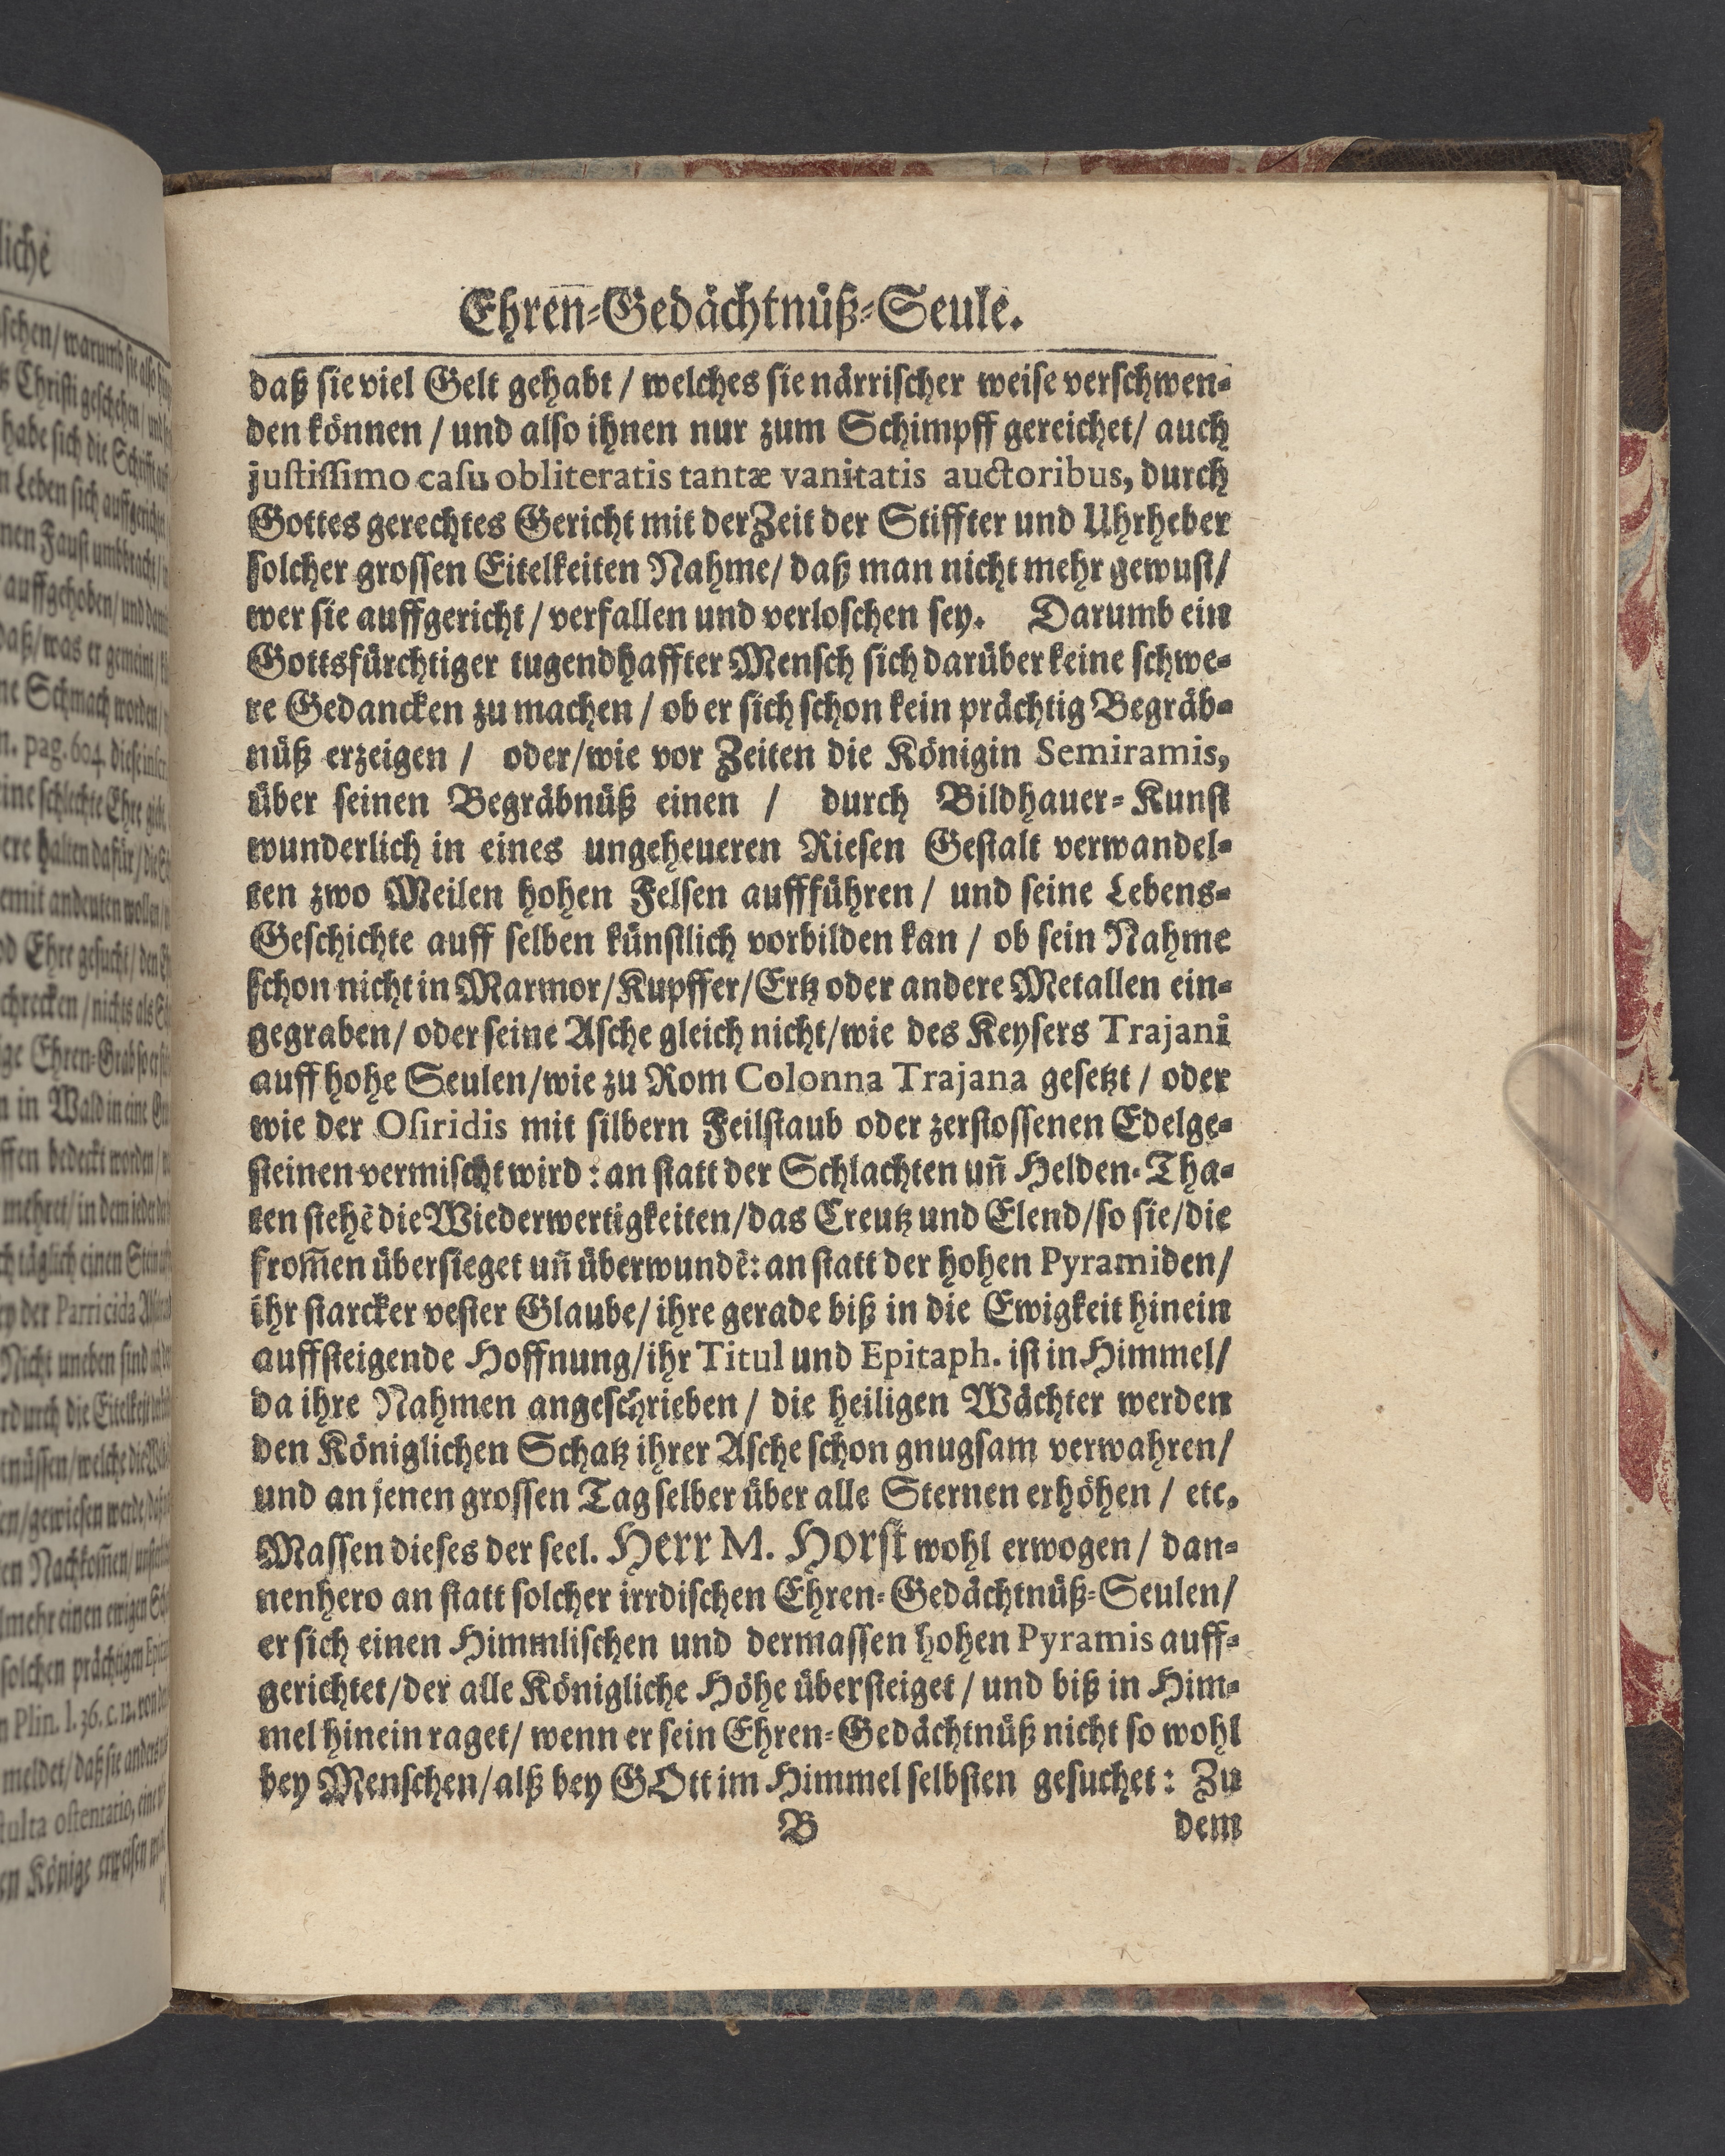 Ehren̅-Gedächtnüß-Seule.
daß sie viel Gelt gehabt / welches sie närrischer weise verschwen-
den können / und also ihnen nur zum Schimpff gereichet/ auch
justissimo casu obliteratis tantæ vanitatis auctoribus, durch
Gottes gerechtes Gericht mit der Zeit der Stiffter und Uhrheber
solcher grossen Eitelkeiten Nahme/ daß man nicht mehr gewust/
wer sie auffgericht / verfallen und verloschen sey. Darumb ein
Gottsfürchtiger tugendhaffter Mensch sich darüber keine schwe-
re Gedancken zu machen / ob er sich schon kein prächtig Begräb-
nüß erzeigen / oder/wie vor Zeiten die Königin Semiramis,
über seinen Begräbnüß einen / durch Bildhauer-Kunst
wunderlich in eines ungeheueren Riesen Gestalt verwandel-
ten zwo Meilen hohen Felsen auffführen / und seine Lebens-
Geschichte auff selben künstlich vorbilden kan / ob sein Nahme
schon nicht in Marmor/Kupffer/Ertz oder andere Metallen ein-
gegraben/ oder seine Asche gleich nicht/wie des Keysers Trajani
auff hohe Seulen/wie zu Rom Colonna Trajana gesetzt / oder
wie der Osiridis mit silbern Feilstaub oder zerstossenen Edelge-
steinen vermischt wird : an statt der Schlachten uñ Helden-Tha-
ten stehẽ die Wiederwertigkeiten/das Creutz und Elend/so sie/die
from̃en übersieget uñ überwundẽ: an statt der hohen Pyramiden/
ihr starcker vester Glaube/ ihre gerade biß in die Ewigkeit hinein
auffsteigende Hoffnung/ihr Titul und Epitaph. ist in Himmel/
da ihre Nahmen angeschrieben / die heiligen Wächter werden
den Königlichen Schatz ihrer Asche schon gnugsam verwahren/
und an jenen grossen Tag selber über alle Sternen erhöhen / etc.
Massen dieses der seel. Herr M. Horst wohl erwogen / dan-
nenhero an statt solcher irrdischen Ehren-Gedächtnüß-Seulen/
er sich einen Himmlischen und dermassen hohen Pyramis auff-
gerichtet/der alle Königliche Höhe übersteiget / und biß in Him-
mel hinein raget/ wenn er sein Ehren-Gedächtnüß nicht so wohl
bey Menschen/alß bey GOtt im Himmel selbsten gesuchet : Zu
B dem